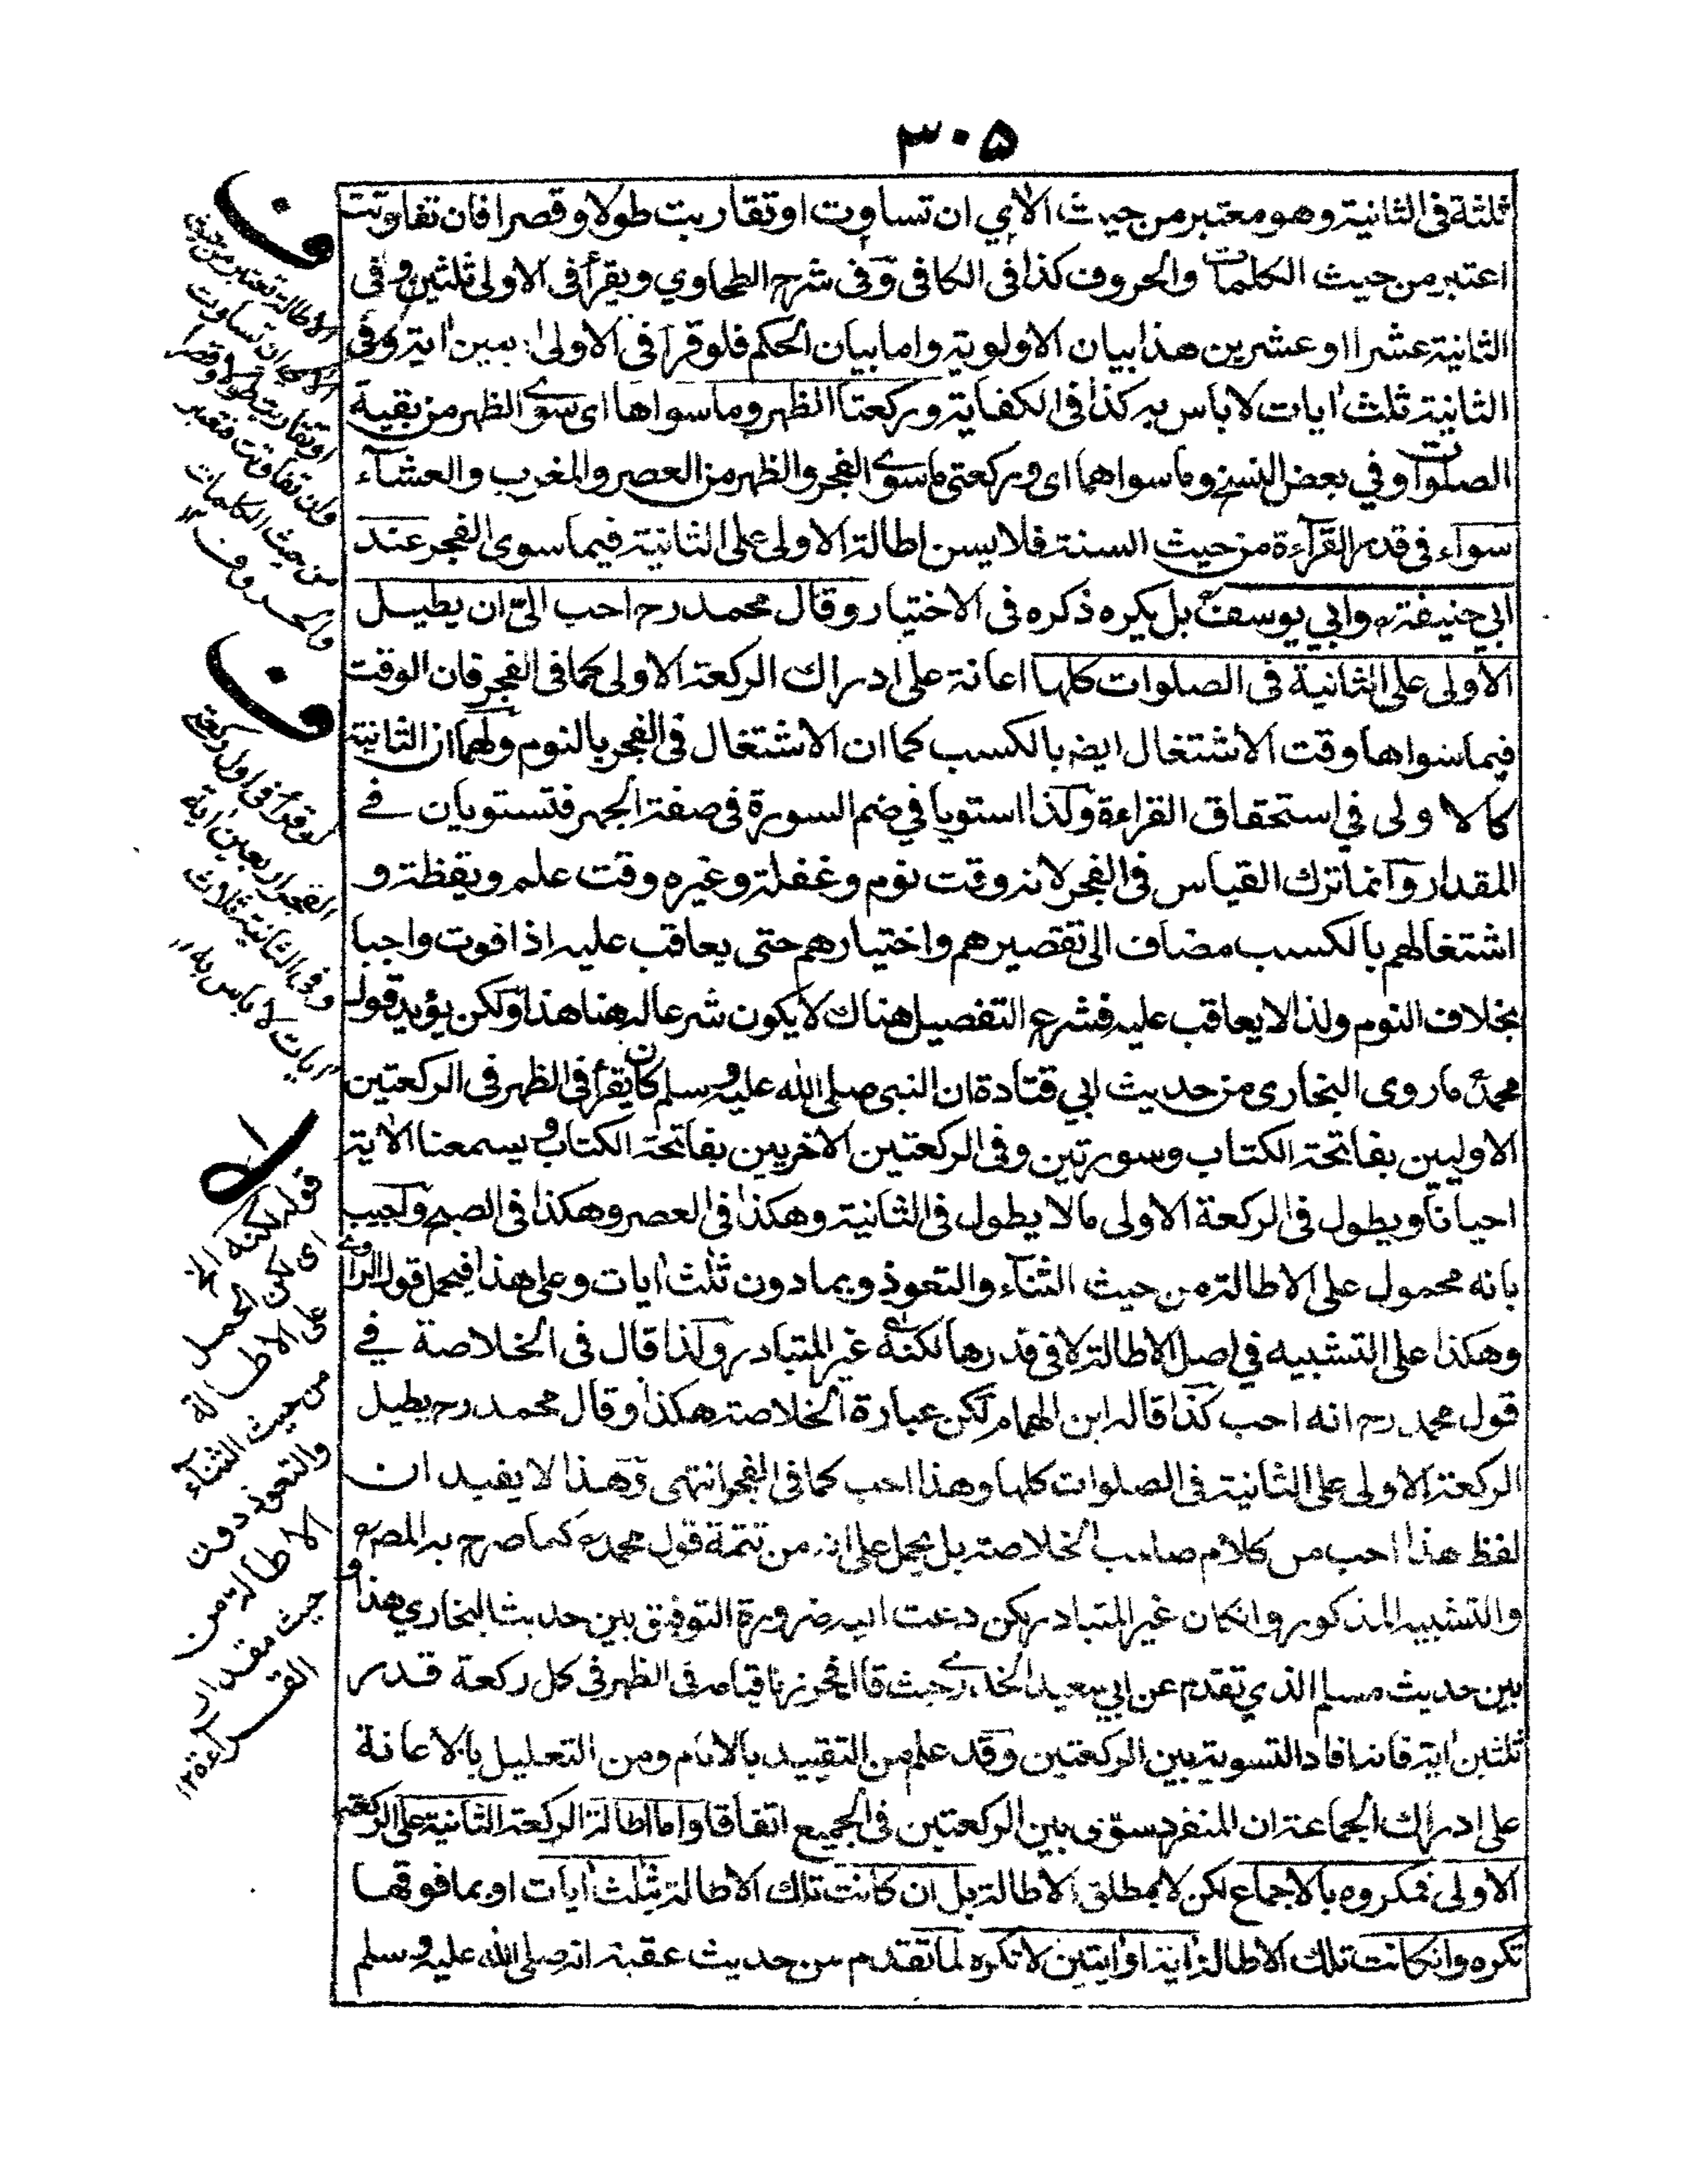 ٣٠٥
ثلثة فى الثانية وهو معتبر من حيث الأي ان تساوت او تقاربت طولا وقصرا فان تفاوتت
اعتبر من حيث الكلمات والحروف كذا فى الكافى وفى شرح الطحاوي ويقرأ فى الاولى ثلثين وفى
الثانية عشرا او عشرين هذا بيان الاولوية واما بيان الحكم فلو قرأ فى الاولى اربعين اية وفى
الثانية ثلث ايات لا باس به كذا فى الكفاية وركعتا الظهر وما سواها اى سوى الظهر من بقية
الصلوات وفي بعض النسخ وما سواهما اى وركعتى ما سوى الفجر والظهر من العصر والمغرب والعشاء
سواء فى قدر القرآءة من حيث السنة فلا يسن اطالة الاولى على الثانية فيما سوى الفجر عند
ابي حنيفة وابي يوسف بل يكره ذكره فى الاختيار وقال محمد رح احب الىّ ان يطيل
الاولى على الثانية فى الصلوات كلها اعانة على ادراك الركعة الاولى كما فى الفجر فان الوقت
فيما سواها وقت الاشتغال ايضا بالكسب كما ان الاشتغال فى الفجر بالنوم ولهما ان الثانية
كالاولى في استحقاق القراءة وكذا استويا في ضم السورة فى صفة الجهر فتستويان فے
المقدار وانما ترك القياس فى الفجر لانه وقت نوم وغفلة وغيره وقت علم ويقظة و
اشتغالهم بالكسب مضاف الى تقصيرهم واختيارهم حتى يعاقب عليه اذا فوت واجبا
بخلاف النوم ولذا لا يعاقب عليه فشرع التفصيل هناك لا يكون شرعا له هنا هذا ولكن يؤيد قول
محمد ما روى البخارى من حديث ابي قتادة ان النبى صلى الله عليه وسلم كان يقرأ فى الظهر فى الركعتين
الاوليين بفاتحة الكتاب وسورتين وفى الركعتين الاخريين بفاتحة الكتاب ويسمعنا الأية
احيانا ويطول فى الركعة الاولى ما لا يطول فى الثانية وهكذا فى العصر وهكذا فى الصبح واجيب
بانه محمول على الاطالة من حيث الثنآء والتعوذ وبما دون ثلث ايات وعلى هذا فيحمل قول الراوے
وهكذا على التشبيه في اصل الاطالة لا فى قدرها لكنه غير المتبادر ولذا قال فى الخلاصة في
قول محمد رح انه احب كذا قاله ابن الهمام لكن عبارة الخلاصة هكذا وقال محمد رح يطيل
الركعة الاولى على الثانية فى الصلوات كلها وهذا احب كما فى الفجر انتهى وهذا لا يفيد ان
لفظ هذا احب من كلام صاحب الخلاصة بل يحمل على انه من تتمة قول محمد كما صرح به المص
والتشبيه المذكور وان كان غير المتبادر لكن دعت اليه ضرورة التوفيق بين حديث البخاري هذا و
بين حديث مسلم الذي تقدم عن ابي سعيد الخدرے حيث قال فحزرنا قيامه فى الظهر فى كل ركعة قدر
ثلثين اية فانه افاد التسوية بين الركعتين وقد علم من التقييد بالامام ومن التعليل بالاعانة
على ادراك الجماعة ان المنفرد يسوى بين الركعتين فى الجميع اتفاقا واما اطالة الركعة الثانية على الركعة
الاولى فمكروه بالاجماع لكن لا بمطلق الاطالة بل ان كانت تلك الاطالة بثلث ايات او بما فوقها
تكره وان كانت تلك الاطالة اية او ايتين لا تكره لما تقدم من حديث عقبة انه صلى الله عليه وسلم
ف
الاطالة تعتبر من حيث
الآي ان تساوت
او تقاربت طولا وقصرا
وان تفاوتت فتعتبر
من حيث الكلمات
والحروف ١٢
ف
لو قرأ فى اول ركعة
الفجر اربعين اية
وفى الثانية ثلاث
ايات لا باس به ١٢
قوله لكنه الخ
اى لكن الحمل
على الاطالة
من حيث الثناء
والتعوذ دون
الاطالة من
حيث مقدار
القراءة ١٢